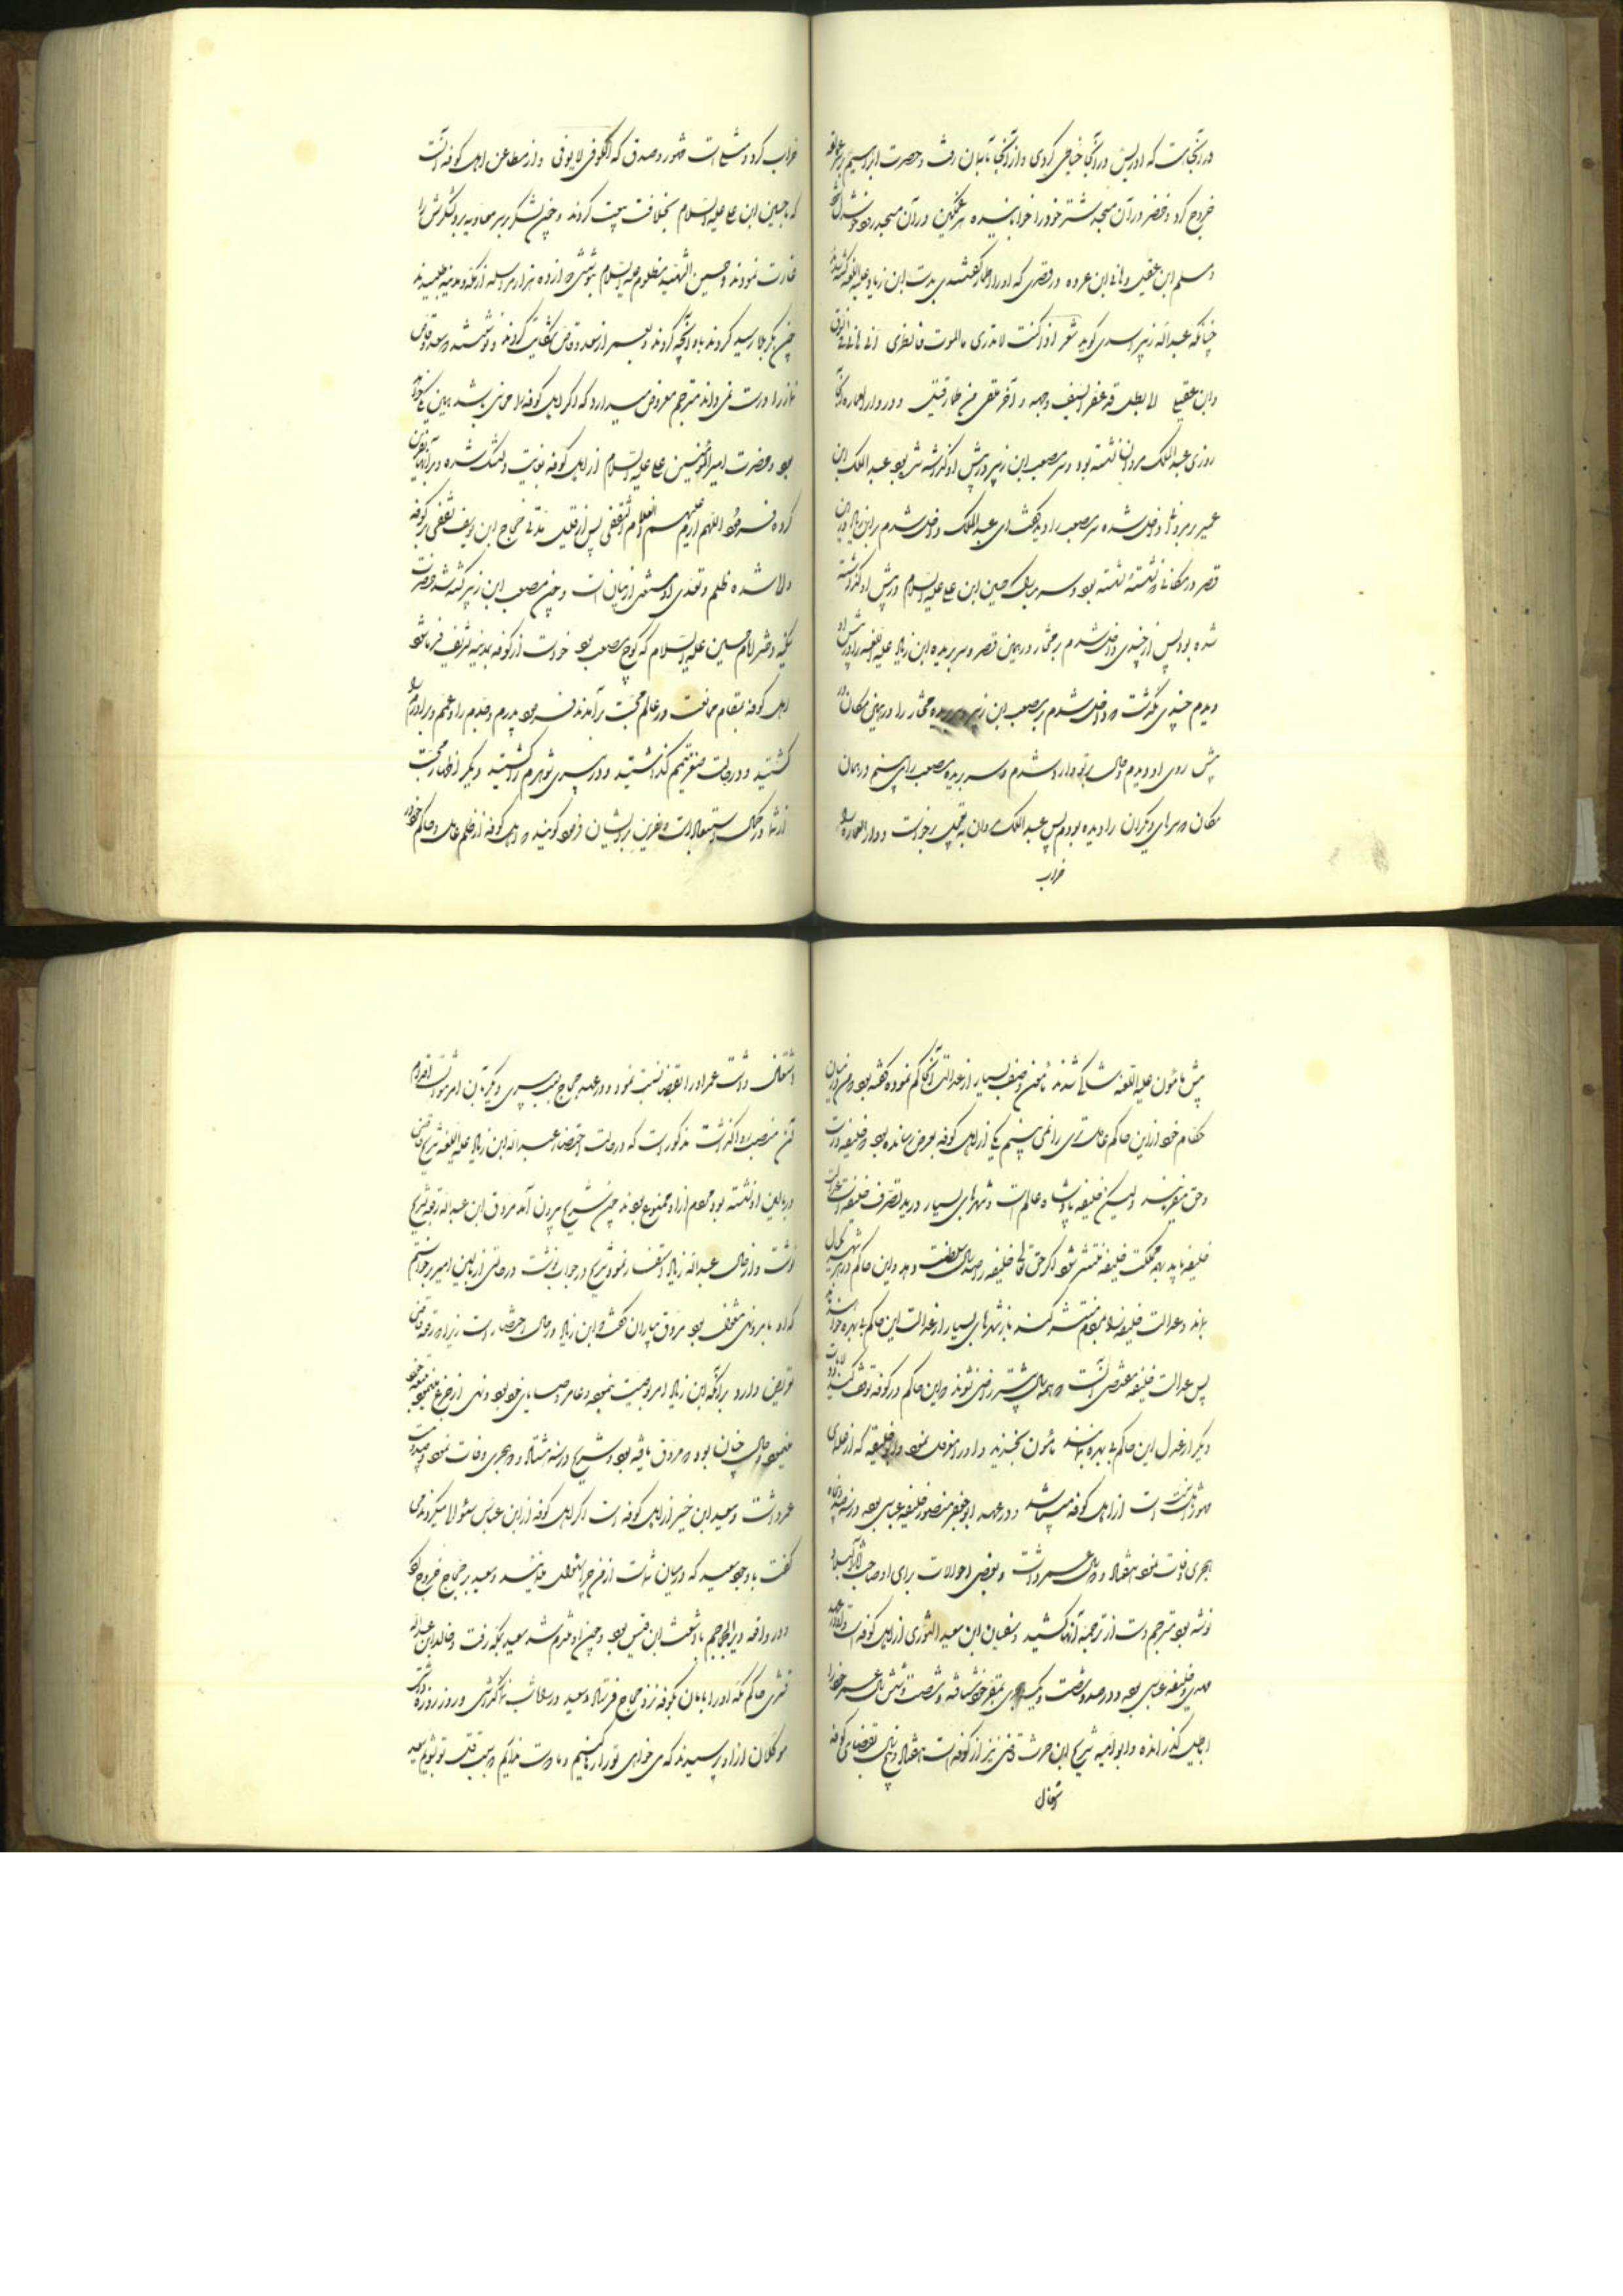 در آنجاست که ادریس در آنجا خیاطی کردی و از آنجا بآسمان رفت و حضرت ابراهیم بر عمالقه
خروج کرد و خضر در آن مسجد شتر خود را خوابانیده هر غمگین در آن مسجد رود خوشدل
و مسلم ابن عقیل و هانی ابن عروه در قصری که او را دارالاماره گفتندی بدست ابن زیاد علیه اللعنه کشته شدند
چنانکه عبدالله زبیر اسدی گوید شعر اذا کنت لا تدری ماالموت فانظری الی هانی فی السوق
وابن عقیل الی بطل قد عفر السیف وجهه و آخر یلقی من طمار قتیل و در دارالاماره آنجا
روزی عبدالملک مروان نشسته بود و سر مصعب ابن زبیر در پیش او گذاشته شده بود عبدالملک ابن
عمیر بر بروی داخل شده سر مصعب را دید گفت ای عبدالملک داخل شدم بر ابن زیاد در این
قصر در مکانی که نشسته نشسته بود و سر مبارک حسین ابن علی علیه السلام در پیش او گذاشته
شده بود پس از چندی داخل شدم بر مختار در همین قصر و سر بریده ابن زیاد علیه اللعنه را در پیش او
دیدم چندی نگذشت که داخل شدم بر مصعب ابن زبیر و سر بریده مختار را در همین مکان در
پیش روی او دیدم و حال بر تو وارد شدم و سر بریده مصعب را می بینم در همان
مکان که سرهای دیگران را دیده بودم پس عبدالملک مروان به تعجیل برخواست و دارالعماره را
خراب
خراب کرد و مثلی است مشهور و صدق که الکوفی لا یوفی و از مطاعن اهل کوفه آنست
که با حسین ابن علی علیه السلام بخلافت بیعت کردند و چون لشکر بر سر معاویه برد لشکرش را
غارت نمودند و حسین الشهید مظلوم علیه السلام نوشتی دوازده هزار مراسله از مکه و مدینه طلبیدند
چون بکربلا رسید کردند باو آنچه کردند و بعمر از سعد وقاص شکایت کردند و نوشتند که سعد وقاص
نماز را درست نمی داند مترجم معروض میدارد که اگر اهل کوفه را مومنی باشد همین
بود و حضرت امیرالمومنین علی علیه السلام از اهل کوفه بغایت دلتنگ شده و بر آنها نفرین
کرده فرمود اللهم ارم علیهم الغلام الثقفی پس از قلیل مدتی حجاج ابن یوسف ثقفی بر کوفه
والی شده ظلم و تعدی او مستغنی از بیان است و چون مصعب ابن زبیر کشته شد حضرت
سکینه دختر امام حسین علیه السلام که زوج مصعب بود خواست از کوفه بمدینه تشریف فرما شود
اهل کوفه بمقام ممانعت و در عالم محبت برآمدند فرمود پدرم و جدم را و عمم و برادرم را
کشتید و در حالت صغر یتیمم گذاشتید و در پیری شوهرم را کشتید دیگر اظهار محبت
از شما در کمال استعجاب است و نفرین بر ایشان فرمود گویند که اهل کوفه از ظلم عامل و حاکم خود
پیش مأمون علیه اللعنه شاکی شدند مأمون وصف بسیار از عدالت آن حاکم نموده گفته بود من در میان
حکام خود از این حاکم عادل تری را نمی بینم یکی از اهل کوفه بعرض رسانده بود که خلیفه راست
و حق میفرمایند ولیکن خلیفه پادشاه عالم است و شهرهای بسیار در ید تصرف خلیفه است عدالت
خلیفه باید بهمه مملکت خلیفه منتشر شود اگر حق تعالی خلیفه را صد سال سلطنت دهد و این حاکم در هر شهر یکسال
بماند و عدالت خلیفه را بمردم منتشر کند باز شهرهای بسیار از عدالت این حاکم بی بهره خواهند ماند
پس عدالت خلیفه مقتضی آنست که همه سال بیشتر راضی نشوند که این حاکم در کوفه توقف کند
دیگر از عدل این حاکم بی بهره بمانند مأمون بخندید و او را معزول نمود و ابو حنیفه که از علمای
مشهور اهل سنت است از اهل کوفه میباشد و در عهد ابوجعفر منصور خلیفه عباسی بود در سنه صد و پنجاه
هجری وفات نمود هفتاد و سال عمر داشت و بعضی احوالات برای او صاحب آثار البلاد
نوشته بود مترجم دست از ترجمه آنها کشید و سفیان ابن سعید الثوری از اهل کوفه است و در عهد
مهدی خلیفه عباسی بود و در صد و شصت و یک هجری بمقر خود شتافته و شصت و شش سال عمر خود را
باجل گذرانده و ابو امیه شریح ابن حرث قاضی نیز از کوفه است هفتاد و پنج سال بقضای کوفه
اشتغال
اشتغال داشت عمر او را بقضا نصب نمود و در عهد حجاج بسبب پیری دیگر بآن امر نتوانست اقدام
آن منصب را واگذاشت مذکور است که در حالت احتضار عبدالله ابن زیاد علیه اللعنه شریح قاضی
در بالین او نشسته بود و مردم از او ممنوع بودند چون شریح بیرون آمد مروق ابن عبدالله رقعه بشریح
نوشت و از حال عبدالله زیاد استفسار نمود شریح در جواب نوشت در حالتی از بالین امیر برخواستم
که او بامر و نهی مشغول بود مروق بیاران گفت که ابن زیاد در حال احتضار است زیرا که رقعه قاضی
تعریض دارد بر آنکه ابن زیاد امر وصیت بنمود و عامر وصایای خود بود و نهی از جزع
مینمود و حال چنان بود که مروق یافته بود و شریح در سنه هشتاد و دو هجری وفات نمود و صد و بیست
عمر داشت و سعید ابن جبیر از اهل کوفه است اگر اهل کوفه از ابن عباس سئوالها میکردند می
گفت با وجود سعید که در میان شماست از من چرا سئوال میکنید و سعید بر حجاج خروج کرد
و در واقعه دیرالجماجم با اشعث ابن قیس بود و چون او منهزم شد سعید بمکه رفت و خالد ابن عبدالله
قسری حاکم مکه او را بامان بکوفه نزد حجاج فرستاد و سعید در سلامت نماز گذاشتی و روز روزه داشتی
موکلان از او پرسیدند که می خواهی تو را رها کنیم و ما دوست نداریم که سبب قتل تو شویم سعید